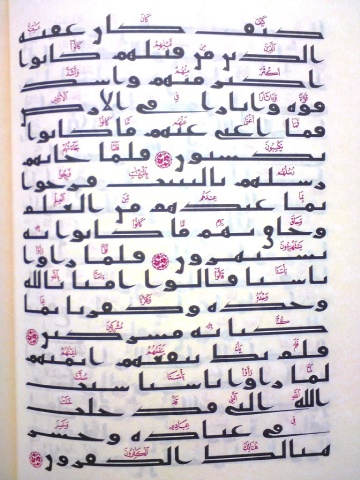 كيف كان عقبة
الذين من قبلهم كانوا
اكثر منهم واشد
قوة واثارا في الارض
فما اغنى عنهم ما كانوا
يكسبون فلما جاتهم
رسلهم بالبينت فرحوا
بما عندهم من العلم
وحاق بهم ما كانوا به
يستهزون فلما راوا
باسنا قالوا امنا بالله
وحده وكفرنا بما
كنا به مشركين
فلم يك ينفعهم ايمنهم
لما راوا باسنا سنت
الله التي قد خلت
في عباده وخسر
هنالك الكفرون